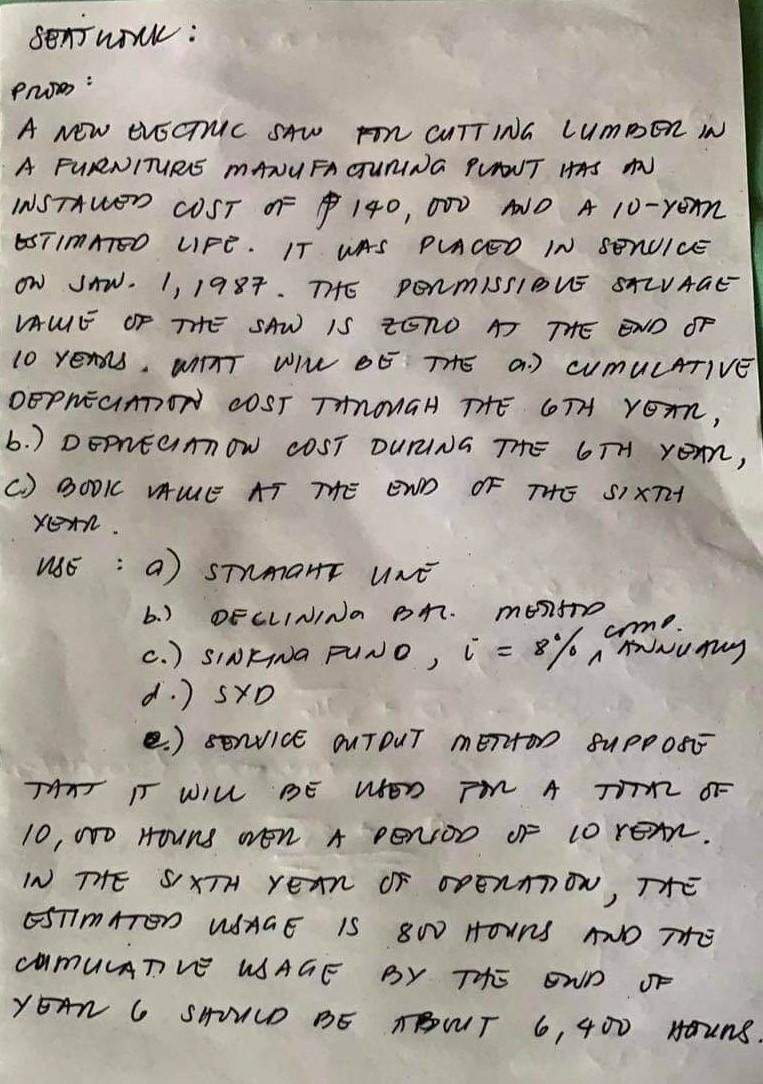 SEATWORK :
PROB :
A NEW ELECTRIC SAW FOR CUTTING LUMBER IN
A FURNITURE MANUFACTURING PLANT HAS AN
INSTALLED COST OF ₱ 140,000 AND A 10-YEAR
ESTIMATED LIFE. IT WAS PLACED IN SERVICE
ON JAN. 1, 1987. THE PERMISSIBLE SALVAGE
VALUE OF THE SAW IS ZERO AT THE END OF
10 YEARS. WHAT WILL BE THE a.) CUMULATIVE
DEPRECIATION COST THROUGH THE 6TH YEAR,
b.) DEPRECIATION COST DURING THE 6TH YEAR,
c.) BOOK VALUE AT THE END OF THE SIXTH
YEAR.
USE : a) STRAIGHT LINE
b.) DECLINING BAL. METHOD
c.) SINKING FUND, i = 8% comp. ANNUALLY
d.) SYD
e.) SERVICE OUTPUT METHOD SUPPOSE
THAT IT WILL BE USED FOR A TOTAL OF
10,000 HOURS OVER A PERIOD OF 10 YEAR.
IN THE SIXTH YEAR OF OPERATION, THE
ESTIMATED USAGE IS 800 HOURS AND THE
CUMULATIVE USAGE BY THE END OF
YEAR 6 SHOULD BE ABOUT 6,400 HOURS.